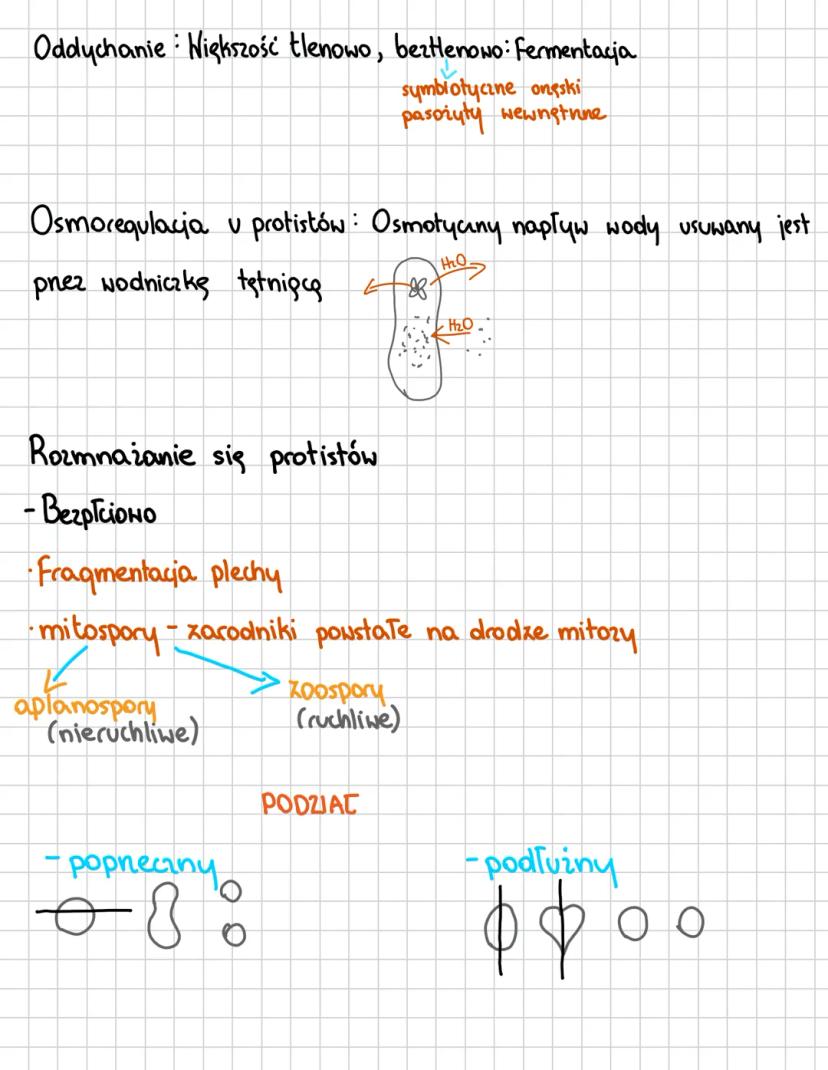 Oddychanie: Większość tlenowo, beztlenowo: Fermentacja
symbiotyczne orzęski
pasożyty wewnętrzne
Osmoregulacja u protistów: Osmotyczny napływ wody usuwany jest
przez wodniczkę tętniącą
H₂O
H₂O
Rozmnażanie się protistów
- Bezpłciowo
· Fragmentacja plechy
· mitospory - zarodniki powstałe na drodze mitozy
aplanospory
(nieruchliwe)
zoospory
(ruchliwe)
PODZIAŁ
- poprzeczny
- podłużny